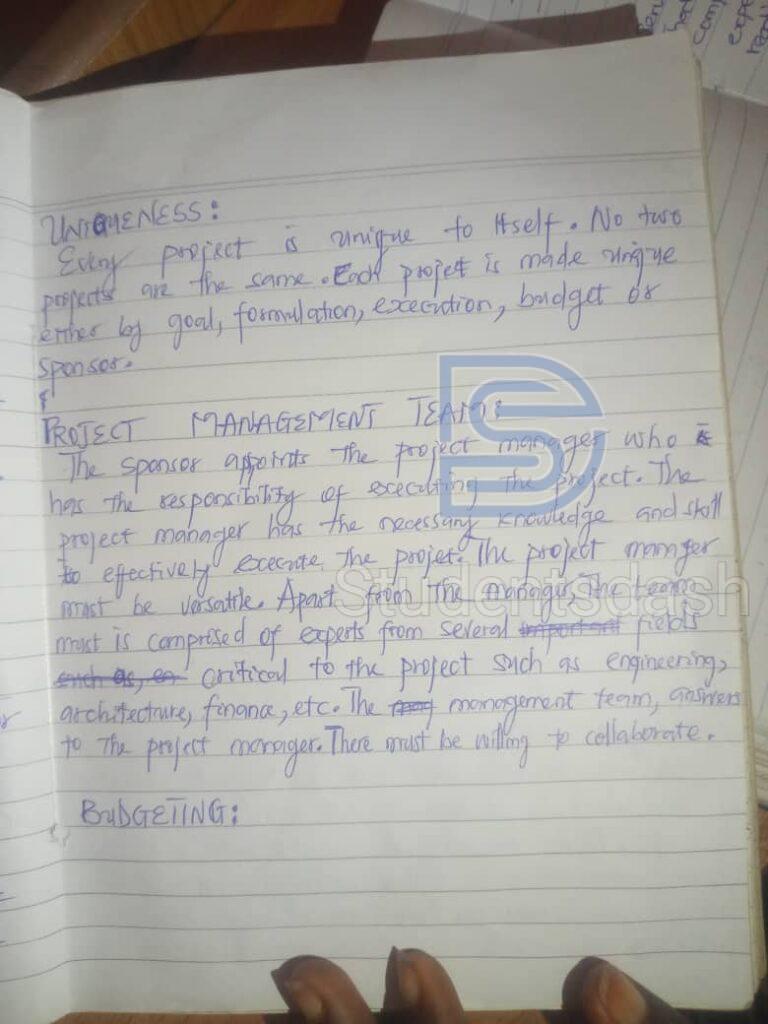 UNIQUENESS:
Every project is unique to itself. No two
projects are the same. Each projet is made unique
either by goal, formulation, execution, budget or
sponsor.
PROJECT MANAGEMENT TEAM:
The sponsor appoints the project manager who
has the responsibility of executing the project. The
project manager has the necessary knowledge and skill
to effectively execute the projet. The project manager
must be versatile. Apart from the manager, The team
must is comprised of experts from several important fields
such as, en critical to the project such as engineering,
architecture, finance, etc. The management team, answers
to the project manager. There must be willing to collaborate.
BUDGETING:
Studentsdash